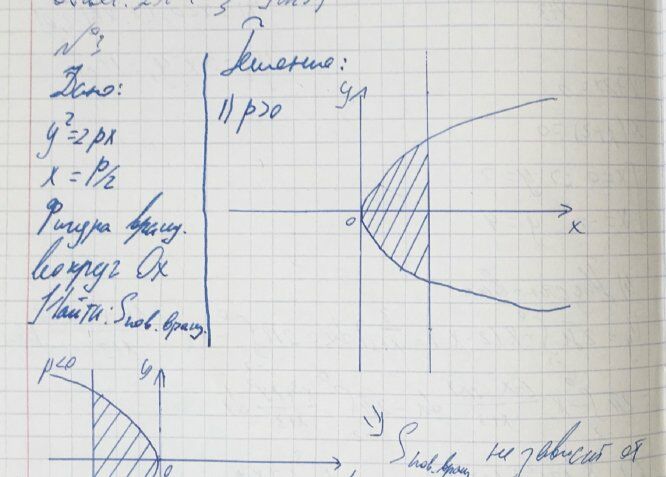 №3
Дано:
y²=2px
x = p/2
Фигура вращ.
вокруг Ox
Найти: Sпов. вращ.
Решение:
1) p>0
y
0
x
p<0
y
0
=> Sпов. вращ. не зависит от